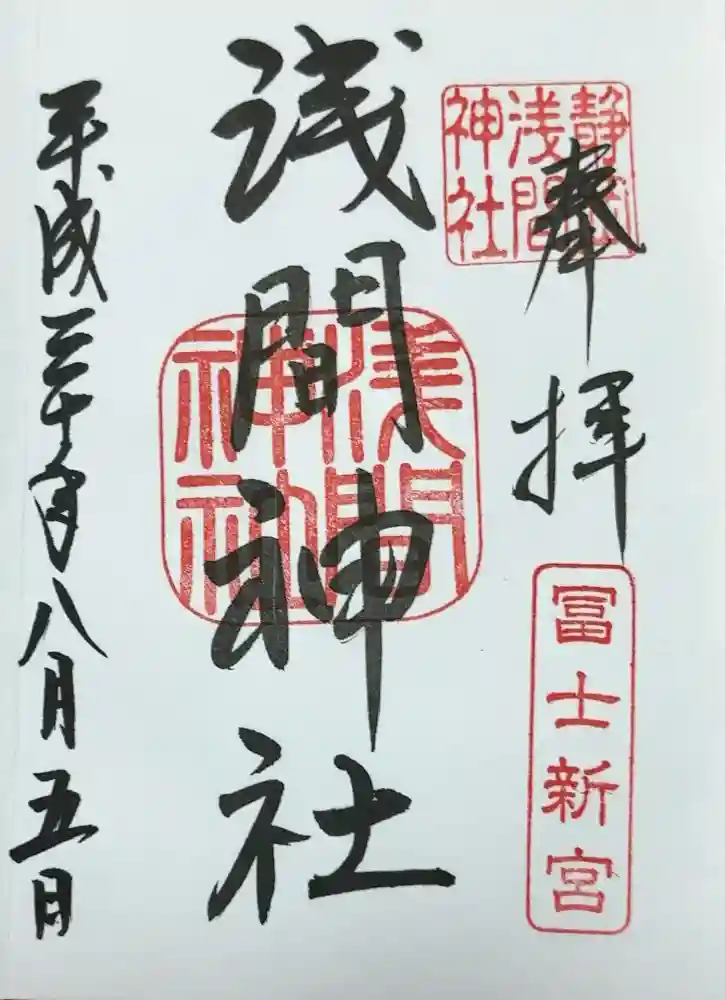 奉拝
静岡浅間神社
富士新宮
浅間神社
浅間神社
平成三十年八月五日